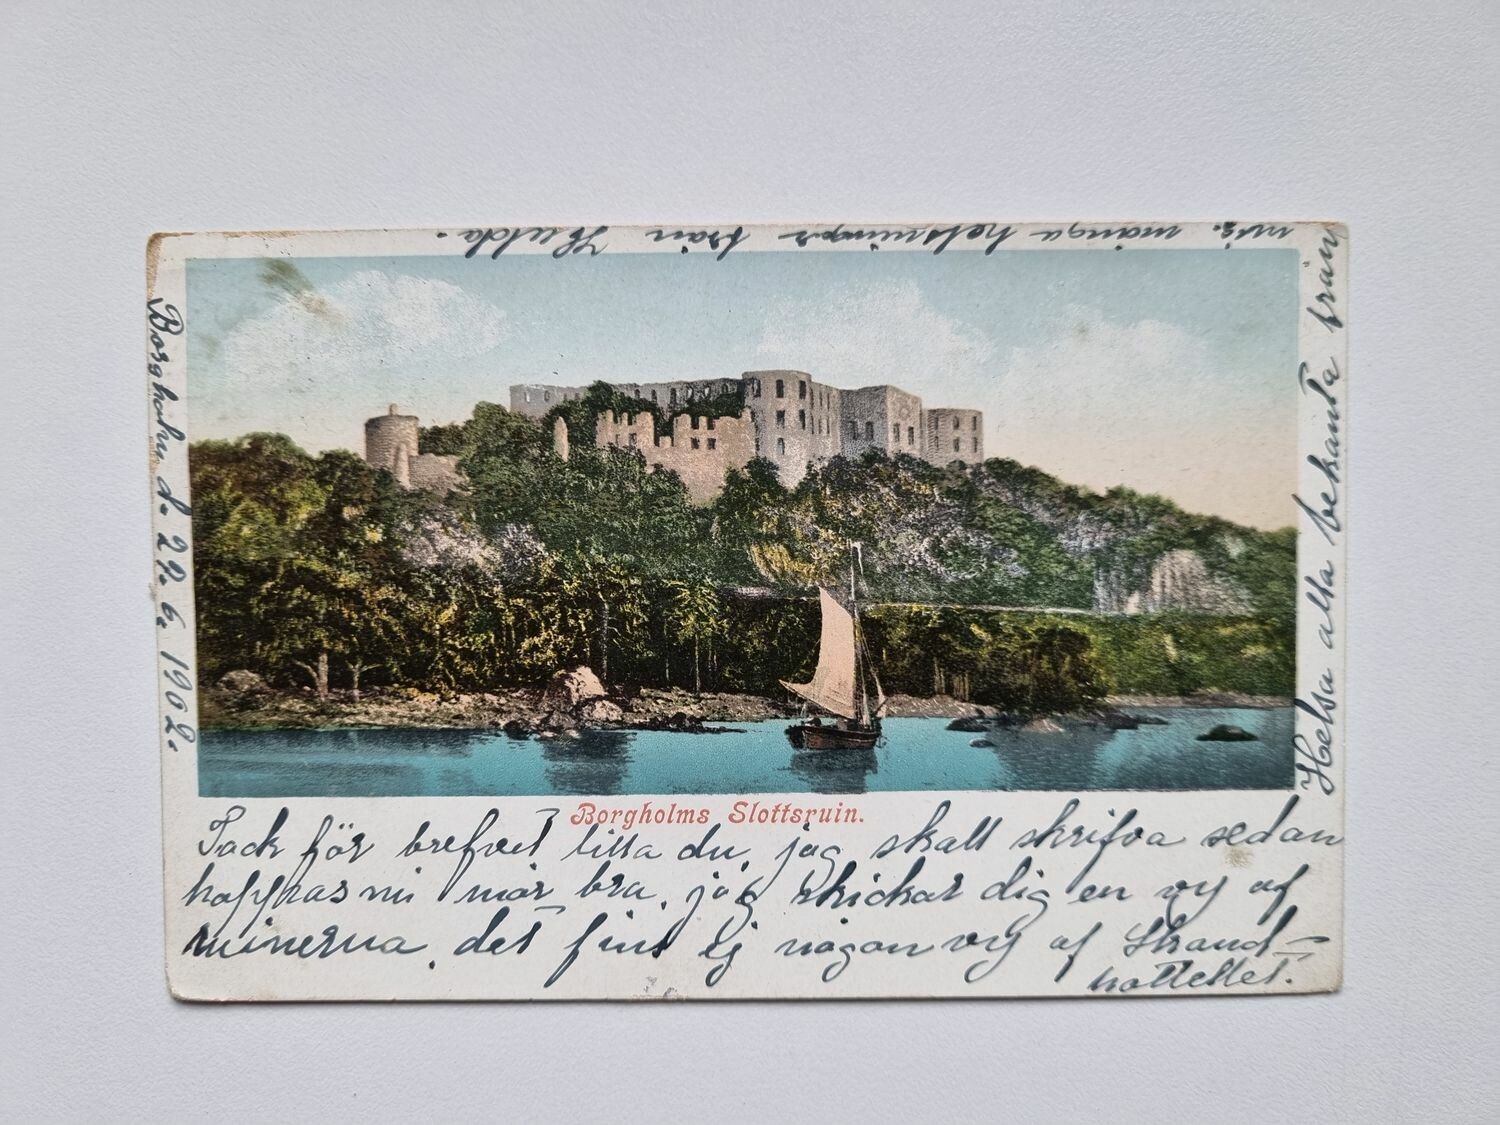 Borgholm d. 29. 6. 1902.
Borgholms Slottsruin.
Tack för brefvet lilla du, jag skall skrifva sedan
hoppas ni mår bra, jag skickar dig en vy af
ruinerna, det fins ej någon vy af Strand-
hotellet.
Helsa alla bekanta från
mig. många helsningar från Hulda.